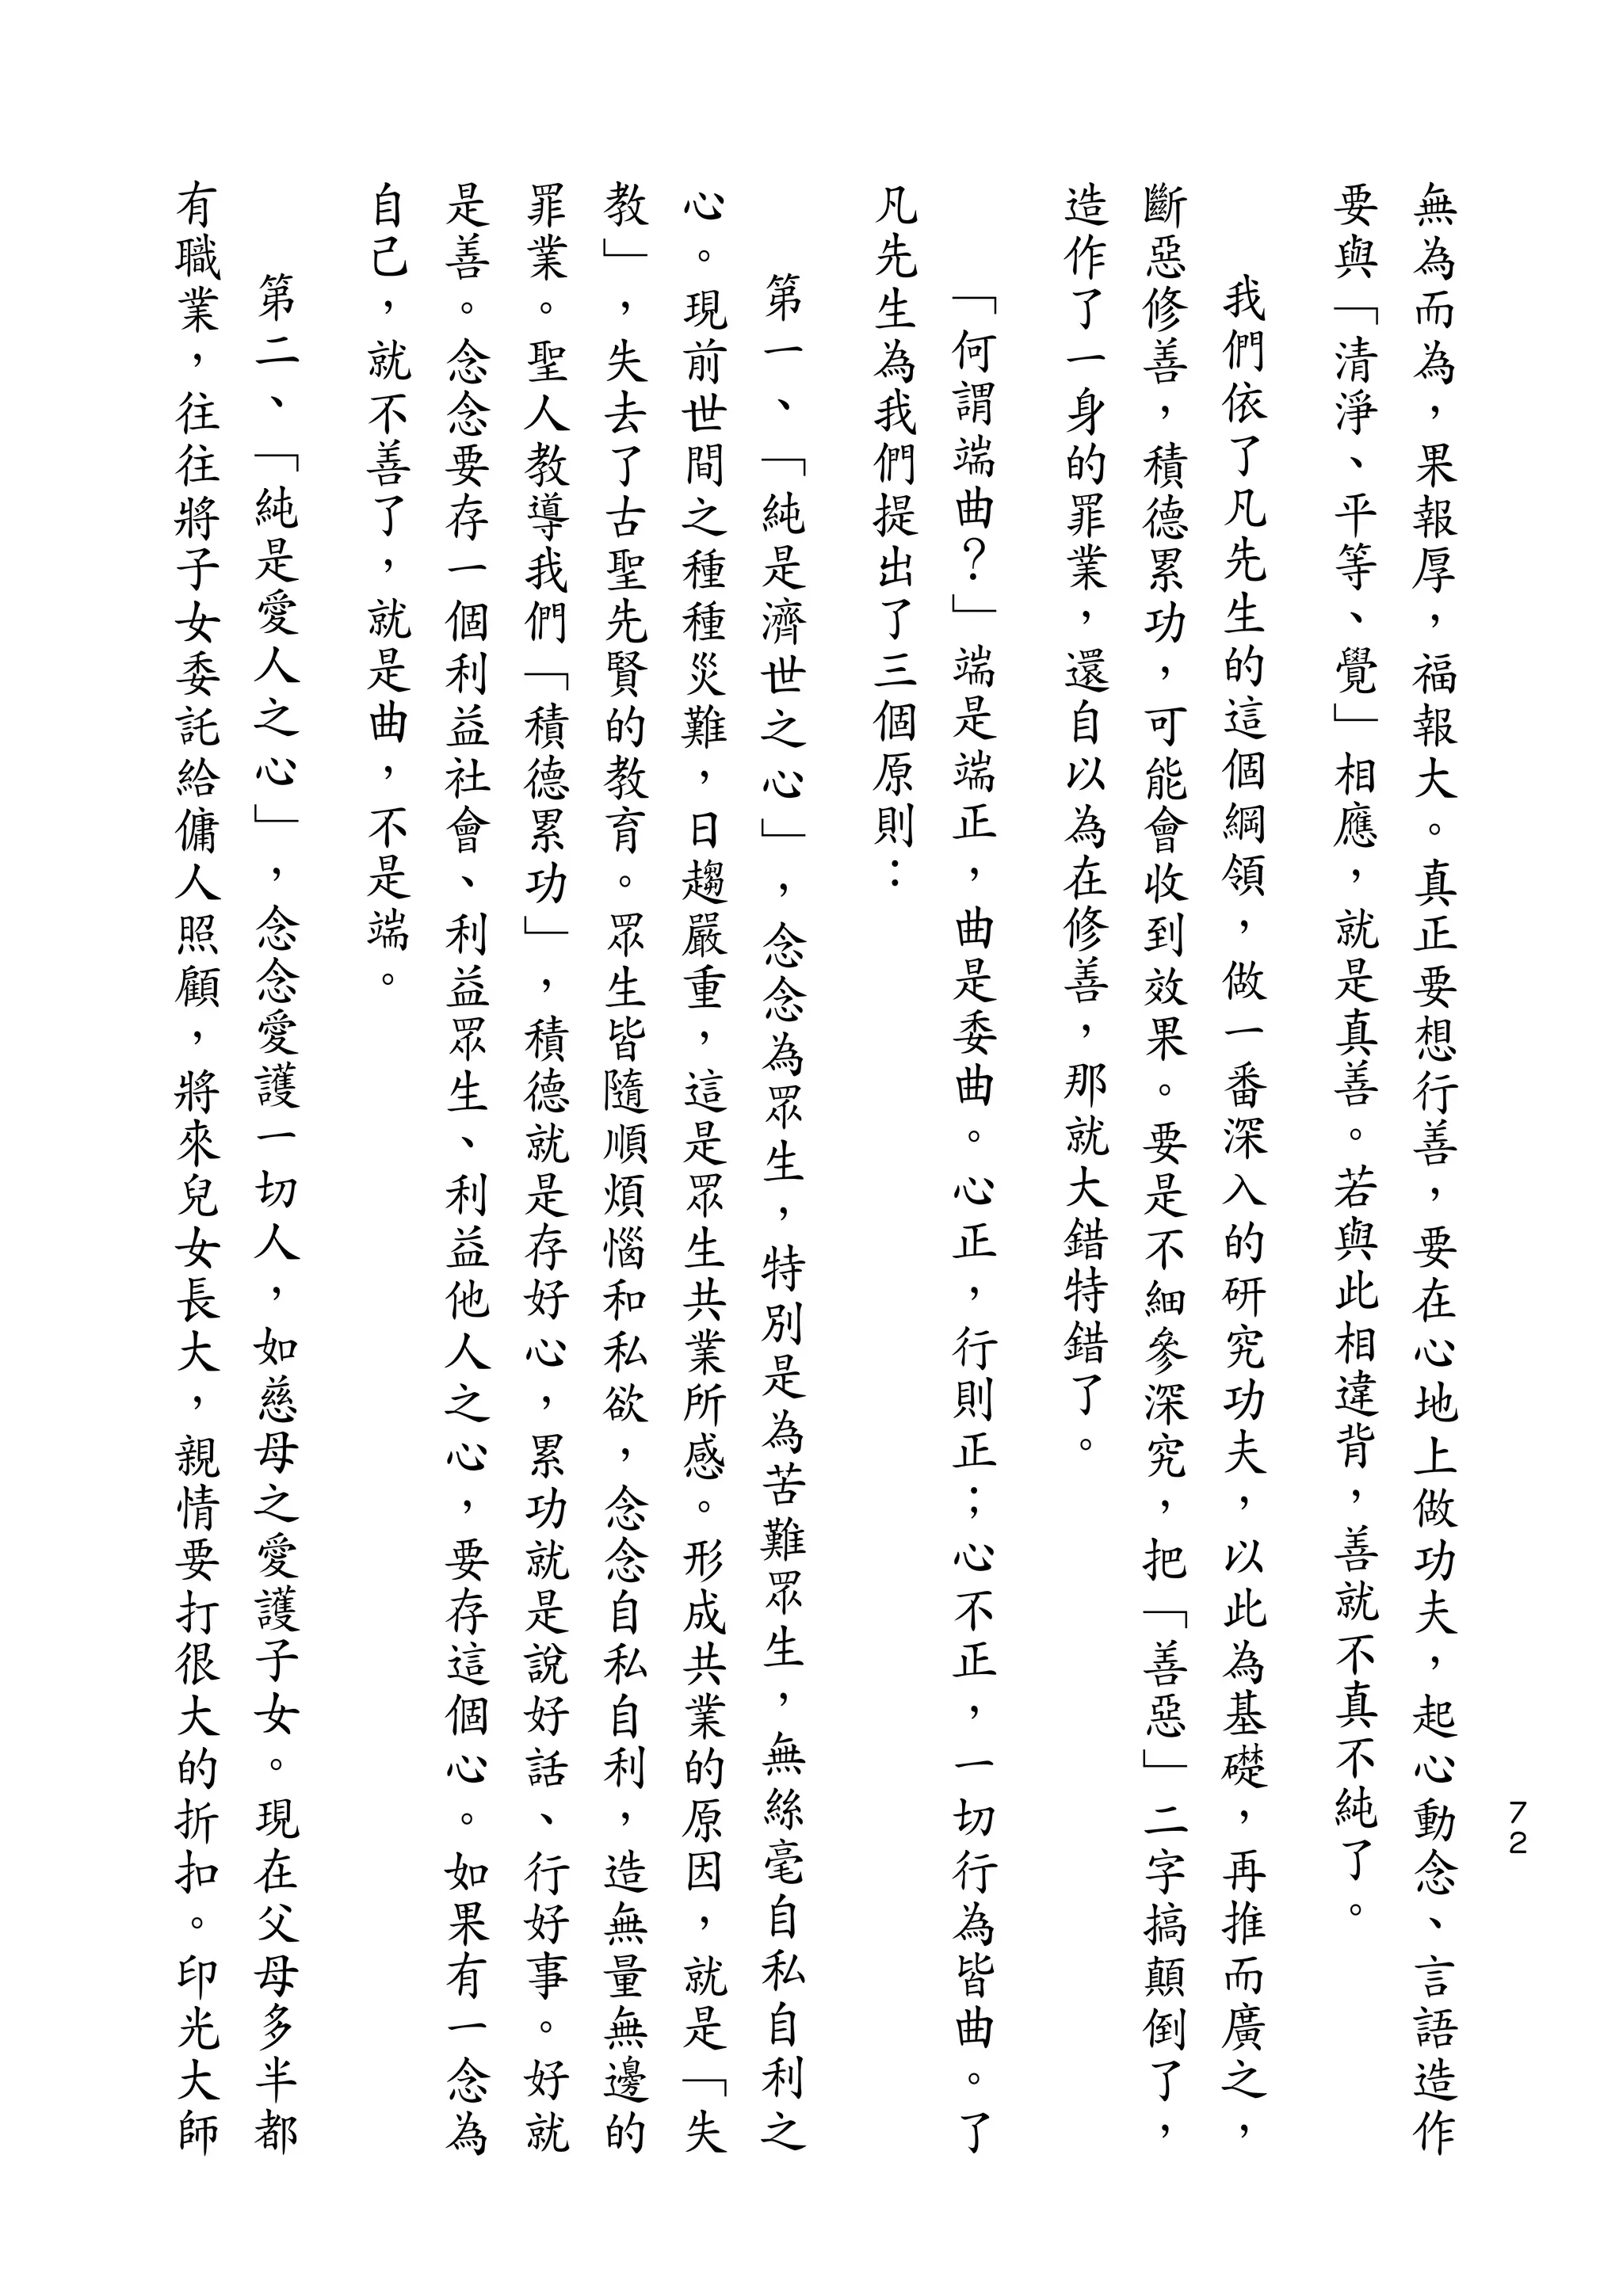 無為而為，果報厚，福報大。真正要想行善，要在心地上做功夫，起心動念、言語造作
要與「清淨、平等、覺」相應，就是真善。若與此相違背，善就不真不純了。
我們依了凡先生的這個綱領，做一番深入的研究功夫，以此為基礎，再推而廣之，
斷惡修善，積德累功，可能會收到效果。要是不細參深究，把「善惡」二字搞顛倒了，
造作了一身的罪業，還自以為在修善，那就大錯特錯了。
「何謂端曲？」端是端正，曲是委曲。心正，行則正；心不正，一切行為皆曲。了
凡先生為我們提出了三個原則：
第一、「純是濟世之心」，念念為眾生，特別是為苦難眾生，無絲毫自私自利之
心。現前世間之種種災難，日趨嚴重，這是眾生共業所感。形成共業的原因，就是「失
教」，失去了古聖先賢的教育。眾生皆隨順煩惱和私欲，念念自私自利，造無量無邊的
罪業。聖人教導我們「積德累功」，積德就是存好心，累功就是說好話、行好事。好就
是善。念念要存一個利益社會、利益眾生、利益他人之心，要存這個心。如果有一念為
自己，就不善了，就是曲，不是端。
第二、「純是愛人之心」，念念愛護一切人，如慈母之愛護子女。現在父母多半都
有職業，往往將子女委託給傭人照顧，將來兒女長大，親情要打很大的折扣。印光大師
72